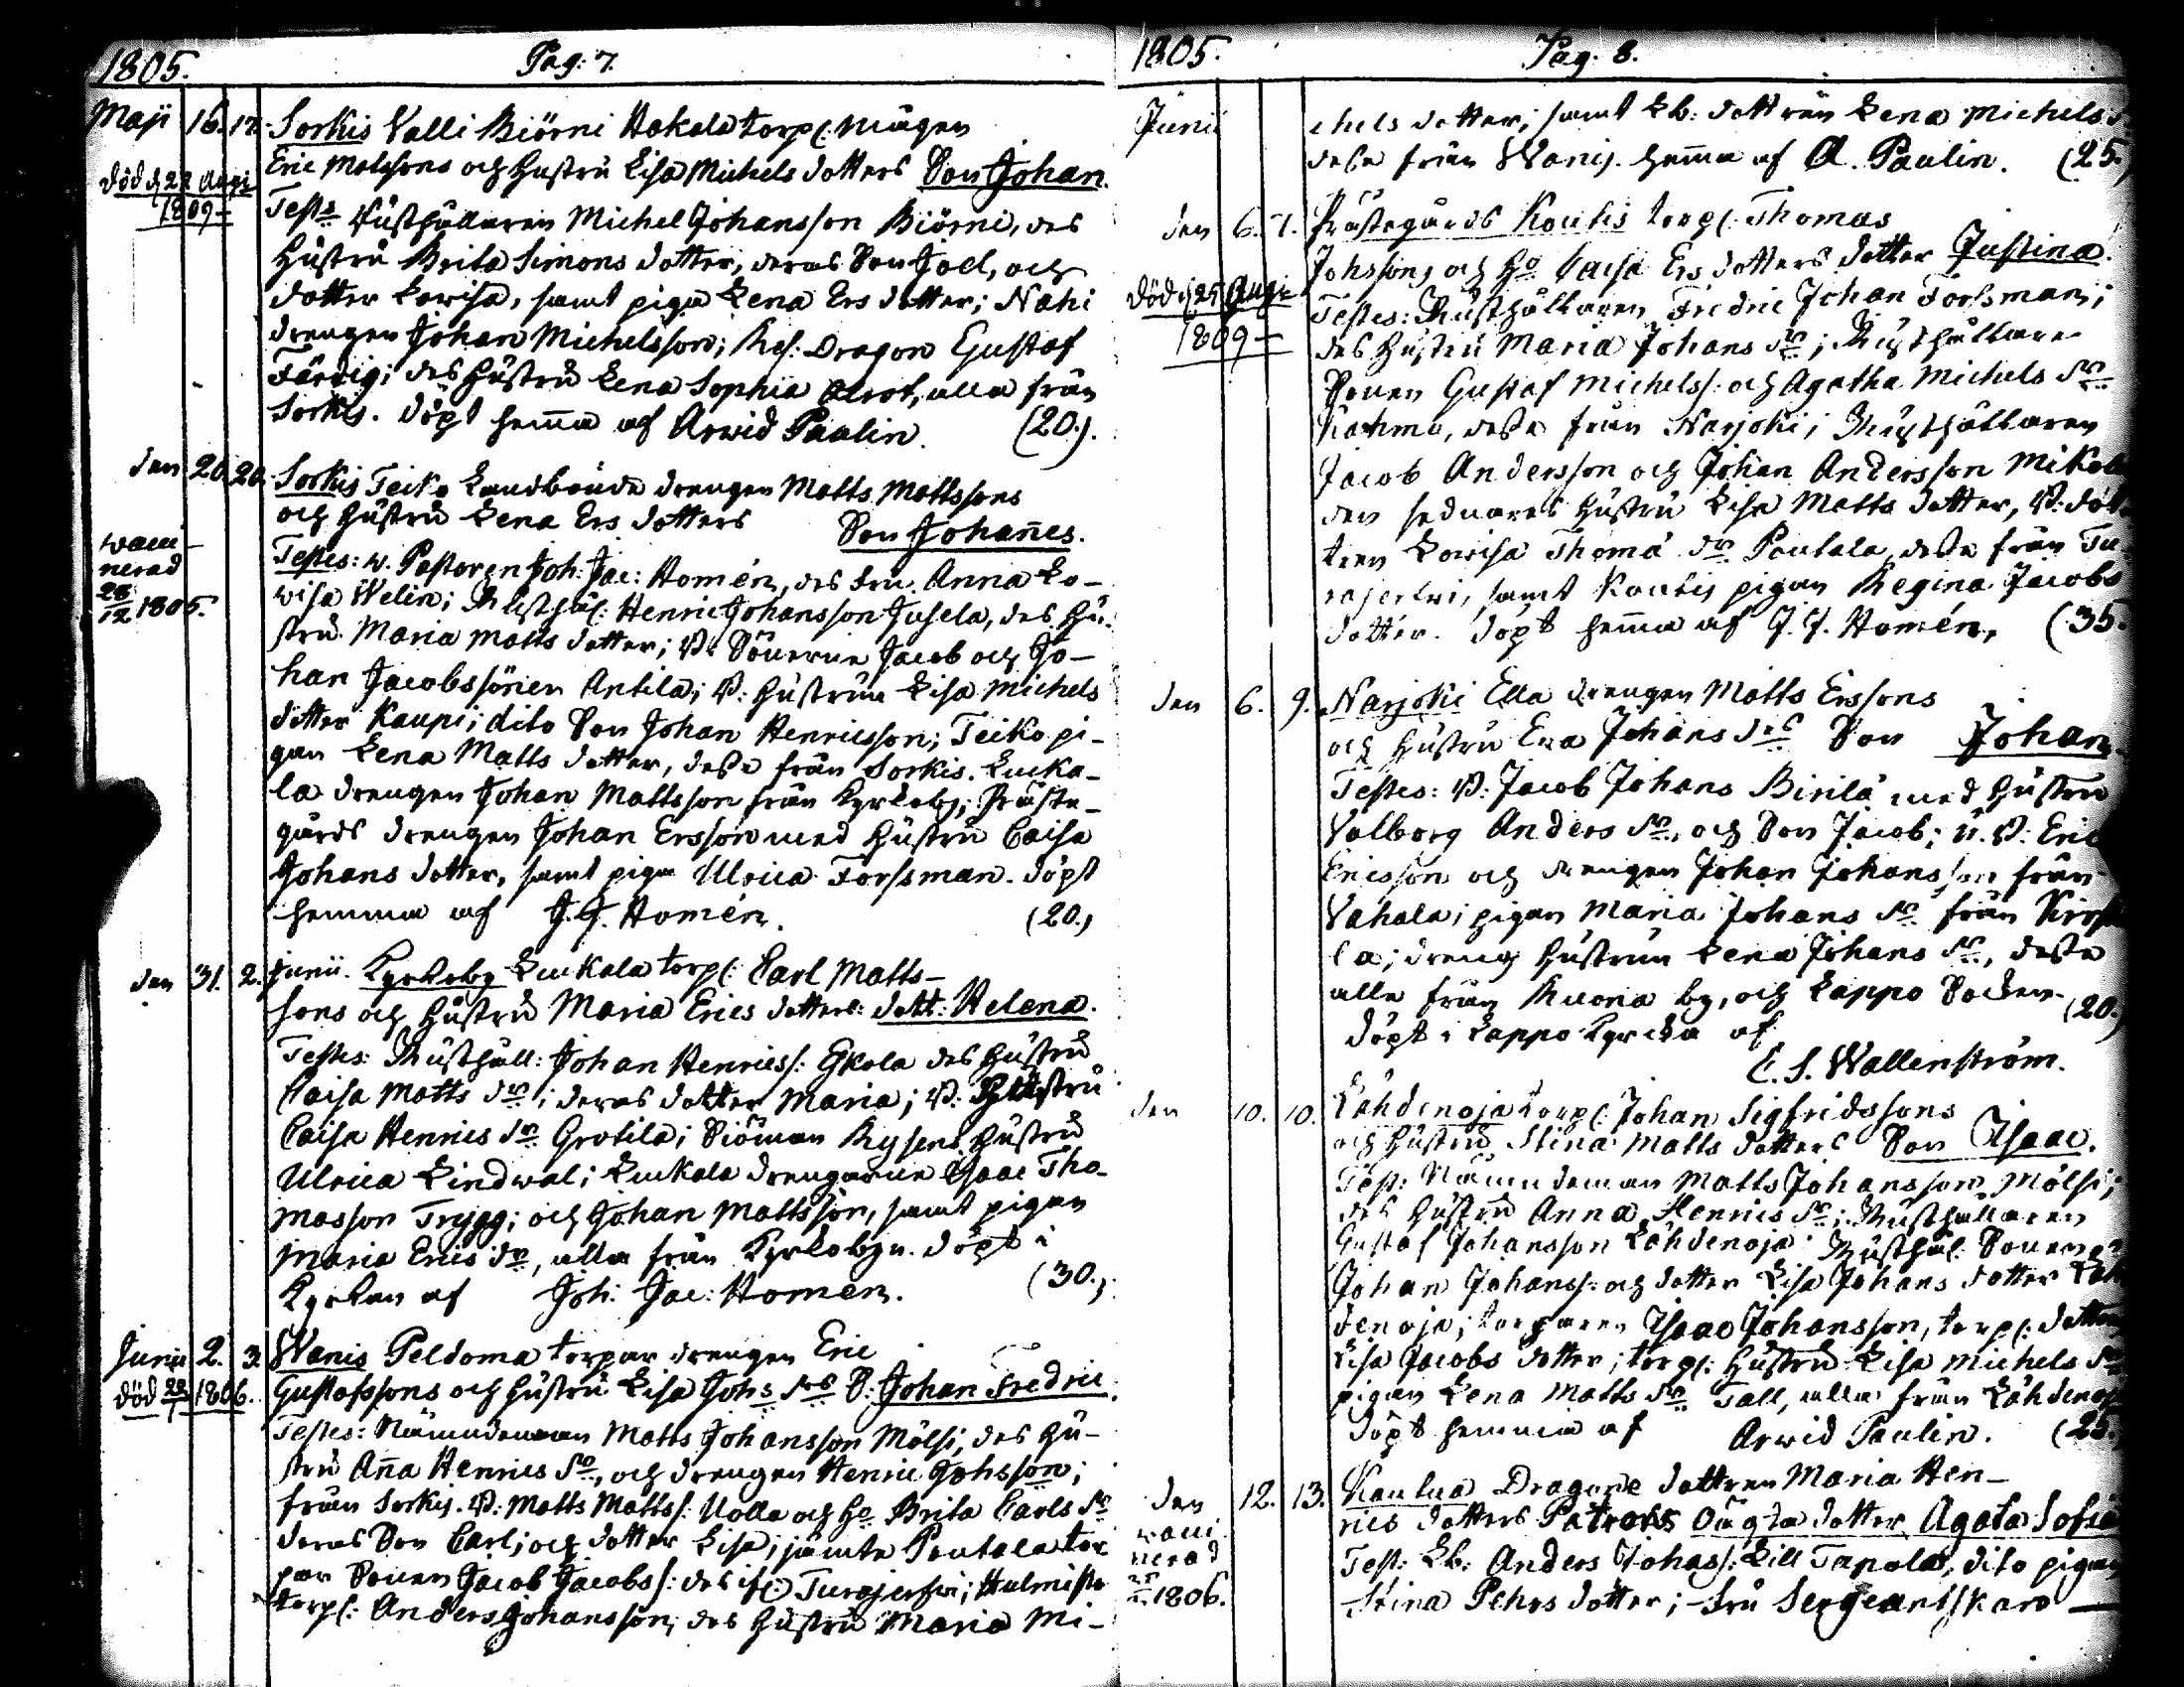 1805. Pag: 7.
Maji 16. 17. Sorkis Valli Biörni Hakala torp(: Mågen
Eric Matssons och Hustru Lisa Michels dotters Son Johan.
död d 22 Augi
1809 –
Tests Rusthållaren Michel Johansson Biörni, des
Hustru Brita Simons dotter, deras Son Joel, och
dotter Lovisa, samt piga Lena Ers dotter; Nahi
drengen Johan Michelsson; Res: Dragon Gustaf
Färdig; des Hustru Lena Sophia, alla från
Sorkis. döpt hema af Arwid Paulin. (20.).
den 20. 20. Sorkis Teiko Landbonde drengen Matts Mattssons
och Hustru Lena Ers dotters Son Johanes.
vacci-
nerad
28/12 1805.
Testes: w. Pastoren Joh: Jac: Homén, des Fru Anna Lo-
wisa Welin; Rusthål: Henric Johansson Jusela, des Hu-
stru Maria Matts dotter; B: Sönerne Jacob och Jo-
han Jacobssöner Antila; B: Hustrun Lisa Michels
dotter Kaupi; dito Son Johan Henricsson; Teiko pi-
gan Lena Matts dotter, desse från Sorkis. Lucka-
la drengen Johan Mattsson från Kyrkoby; Präste-
gårds drengen Johan Ersson med Hustru Caisa
Johans dotter, samt piga Ulrica Forssman. döpt
hemma af J. J. Homén. (20.)
den 31. 2. Junii. Kyrkoby Luckala torp(: Carl Matts-
sons och Hustru Maria Erics dotters dott: Helena.
Testes: Rusthåll: Johan Henrics(: Ekola des Hustru
Caisa Matts dr; deras dotter Maria; B: Hustru
Caisa Henrics dr Grotila; Siöman Rysens Hustru
Ulrica Lindwal; Luckala drengarne Isaac Tho-
masson Trygg; och Johan Mattsson, samt pigan
Maria Erics dr, alla från Kyrkobyn. döpt i
Kyrkan af Joh: Jac: Homén. (30.).
Junii 2. 3. Wanis Peldoma torpar drengen Eric
död 22/1 1806.
Gustafssons och Hustru Lisa Johs drs S: Johan Fredric.
Testes: Nämndeman Matts Johansson Mölsi, des Hu-
stru Ana Henrics dr, och drengen Henric Johsson;
från Sorkis. B: Matts Matts(: Uolla och Ho Brita Carls dr
deras Son Carl; och dotter Lisa; jämte Pentala tor
par Sonen Jacob Jacobs(: Turajerfvi;
torp(: Anders Johansson, des Hustru Maria Mi-
1805. Pag: 8.
Junii
chels dotter; samt Lb: dottren Lena Michels d
desse från Wanis. hema af A. Paulin. (25.)
den 6. 7. Prästegårds Koutis torp(: Thomas
Johssons och Ho Caisa Ers dotters dotter Justina.
död d 25 Augi
1809 –
Testes: Rusthållaren Fredric Johan Forssman;
des Hustru Maria Johans dr; Rusthållare
Sonen Gustaf Michels(: och Agatha Michels dr
desse från Narjoki; Rusthållaren
Jacob Andersson och Johan Andersson Mikola
den sednares Hustru Lisa Matts dotter, B: dot
tren Lovisa Thoma dr Pentala, desse från Tu
rajerfvi, samt Koutis pigan Regina Jacobs
dotter. döpt hema af J. J. Homén, (35.
den 6. 9. Narjoki Ella drengen Matts Erssons
och Hustru Eva Johans drs Son Johan.
Testes: B: Jacob Johans Birilä med Hustru
Valborg Anders dr, och Son Jacob; u. B: Eric
Ericsson och drengen Johan Johansson från
Vahala; pigan Maria Johans dr från
la; dreng Hustrun Lena Johans dr, desse
alla från Ruona by, och Lappo Socken.
döpt i Lappo Kyrcka af (20.)
E. S. Wallenström.
den 10. 10. Lähdenoja torp(: Johan Sigfridssons
och Hustru Stina Matts dotters Son Isaac.
Test: Nämndeman Matts Johansson Mölsi;
des Hustru Anna Henrics dr; Rusthållaren
Gustaf Johansson Lähdenoja; Rusthål: Sonen
Johan Johans(: och dotter Lisa Johans dotter Läh
denoja; torparen Isaac Johansson, torp(: dotter
Lisa Jacobs dotter; torp(: Hustru Lisa Michels dr
pigan Lena Matts dr Tall, alla från Lähdenoja
döpt hemma af Arwid Paulin. (25.
den 12. 13. Kautua Dragone dottren Maria Hen-
rics dotters Oägta dotter Agata Sofia
vacci
nerad
1806.
Test: Lb: Anders Johas(: Lill Tapola, dito pigan
Stina Pehrs dotter; Fru Sergeantskan